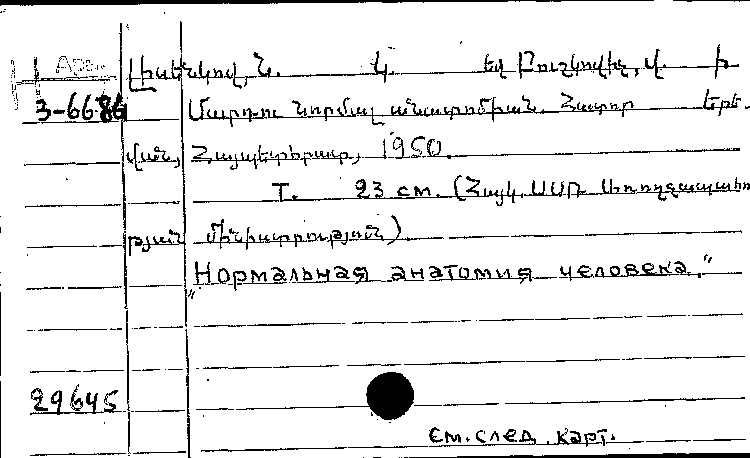 Լիսենկով, Ն. Կ. եվ Բուշկովիչ, Վ. Ի
3-6686 Մարդու նորմալ անատոմիան. Հատոր Երե-
վան, Հայպետհրատ, 1950.
T. 23 см. (Հայկ. ՍՍՌ Առողջապահու
թյան մինիստրություն)
"Нормальная анатомия человека."
29645
См. след. карт.